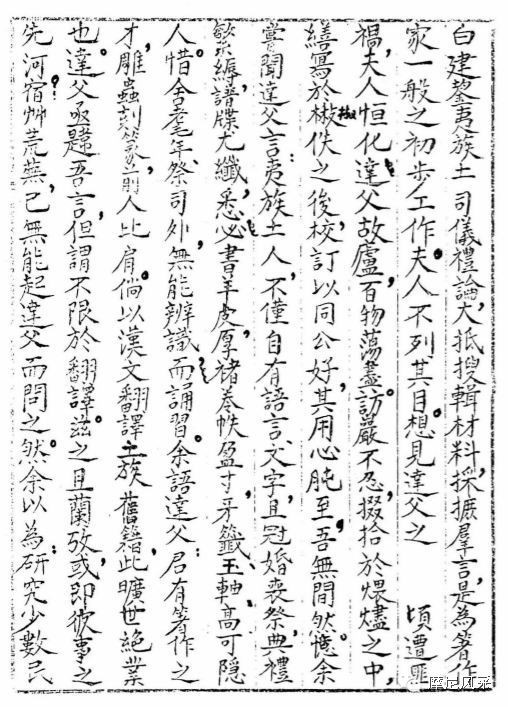 白建鋆夷族土司儀禮論大抵搜輯材料，採摭羣言，是為著作
家一般之初步工作。夫人不列其目。想見達父之　頃遭匪
禍，夫人恒化，達父故廬，百物蕩盡，訪嚴不忍掇拾於煨燼之中，
繕寫於散佚之後，校訂以同公好，其用心肫至，吾無間然。憶余
嘗聞達父言：夷族土人，不僅自有語言文字，且冠婚喪祭，典禮
繁縟，譜牒尤纖悉必書，羊皮厚楮，卷帙盈寸，牙籤玉軸，高可隱
人，惜舍耄年祭司外，無能辨識而誦習。余語達父：君有著作之
才，雕蟲刻篆，前人比肩。倘以漢文翻譯土族舊籍，此曠世絕業
也。達父亟韙吾言，但謂不限於翻譯。茲之且蘭攷，或即彼事之
先河。宿艸荒蕪，已無能起達父而問之。然余以為研究少數民
摩尼风采